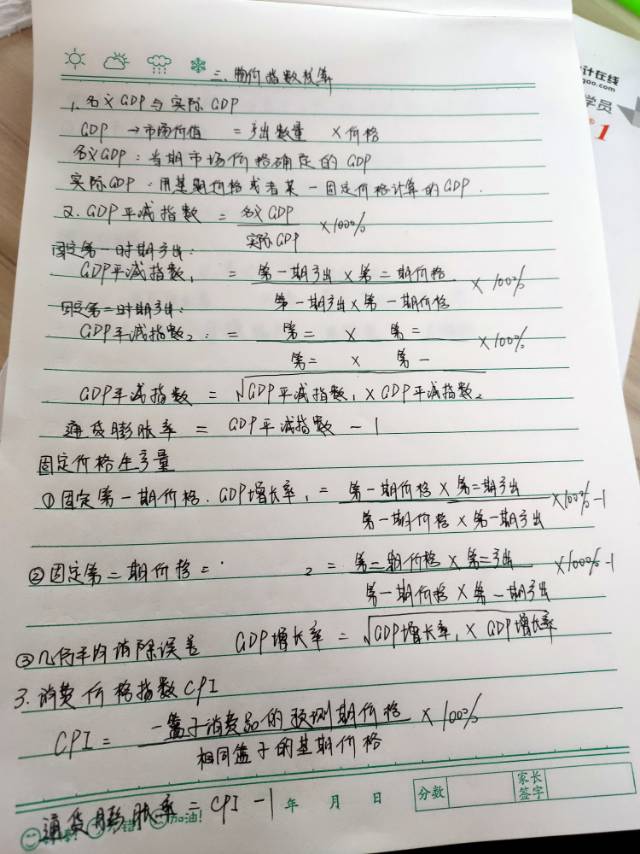 三、物价指数核算
1.名义GDP与实际GDP
GDP → 市场价值 = 产出数量 × 价格
名义GDP：当期市场价格确定的GDP
实际GDP：用基期价格或者某一固定价格计算的GDP.
2.GDP平减指数 = 名义GDP / 实际GDP ×100%
固定第一时期产出：
GDP平减指数1 = 第一期产出×第二期价格 / 第一期产出×第一期价格 × 100%
固定第二时期产出：
GDP平减指数2：= 第二 × 第二 / 第二 × 第一 ×100%
GDP平减指数 = √GDP平减指数1 × GDP平减指数2
通货膨胀率 = GDP平减指数 - 1
固定价格生产量
①固定第一期价格.GDP增长率1 = 第一期价格×第二期产出 / 第一期价格×第一期产出 ×100%-1
②固定第二期价格 = 2 = 第二期价格×第二产出 / 第一期价格×第一期产出 ×100%-1
③几何平均消除误差 GDP增长率 = √GDP增长率1 × GDP增长率
3.消费价格指数CPI
CPI = 一篮子消费品的预测期价格 / 相同篮子的基期价格 × 100%
通货膨胀率 = CPI - 1
加油!
年 月 日
分数
家长签字
计在线
学员
1